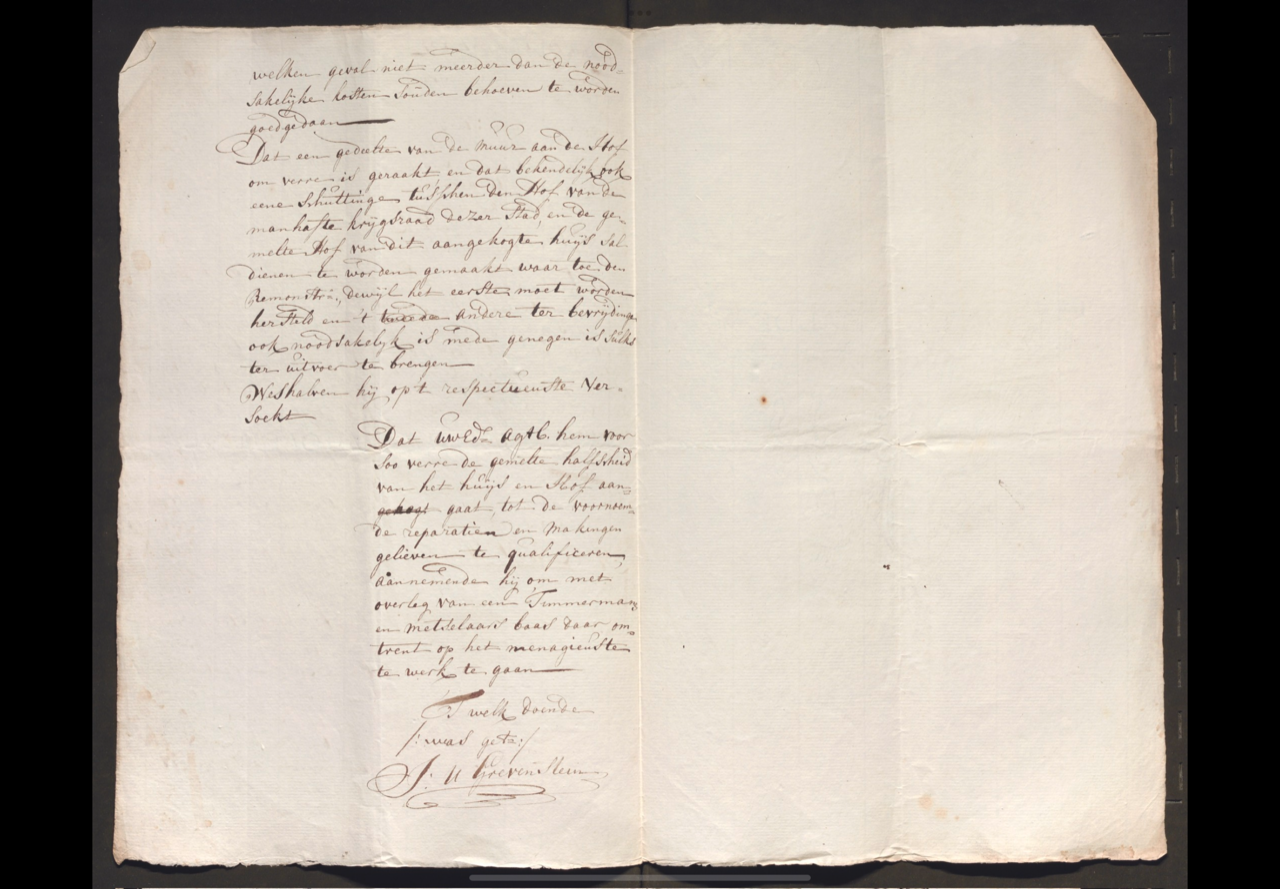 welken geval niet meerder dan de nood-
sakelijke kosten souden behoeven te worden
goedgedaan
Dat een gedeelte van de muur aan de Hof
om verre is geraakt en dat bekendelijk ook
eene schuttinge tusschen den Hof van de
manhafte krijgsraad dezer Stad, en de ge-
melte Hof van dit aangekogte huijs sal
dienen te worden gemaakt waar toe den
Remonstrt., dewijl het eerste moet worden
hersteld en 't tweede andere ter bevrijdinge
ook noodsakelijk is mede genegen is sulks
ter uitvoer te brengen
Weshalven hij op't respectueuste ver-
soekt
Dat uwEd. agtb. hem voor
soo verre de gemelte halfscheid
van het huijs en Hof aan-
gaat, tot de voornoem-
de reparatien en makingen
gelieven te qualificeren,
aannemende hij om met
overleg van een Timmerman
en metselaars baas daar om-
trent op het menagieuste
te werk te gaan
T welk doende
/: was get. :/
J: U Grevenstein